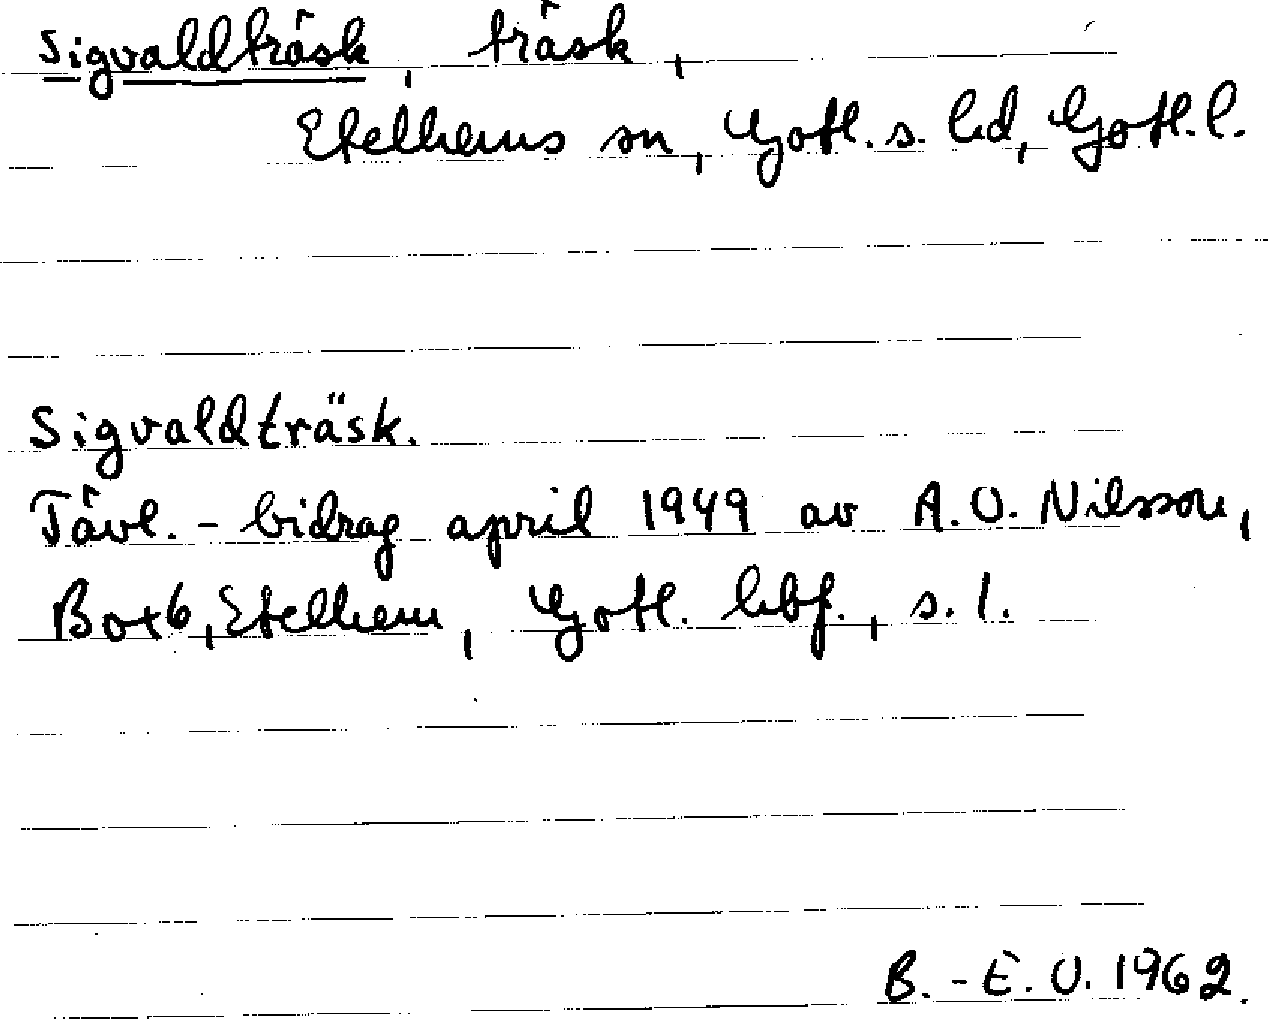 Sigvaldträsk, träsk,
Etelhems sn, Gotl. s. hd, Gotl. l.
Sigvaldträsk.
Tävl. - bidrag april 1949 av A. O. Nilsson,
Box 6, Etelhem, Gotl. hbf., s. 1.
B. - E. O. 1962.